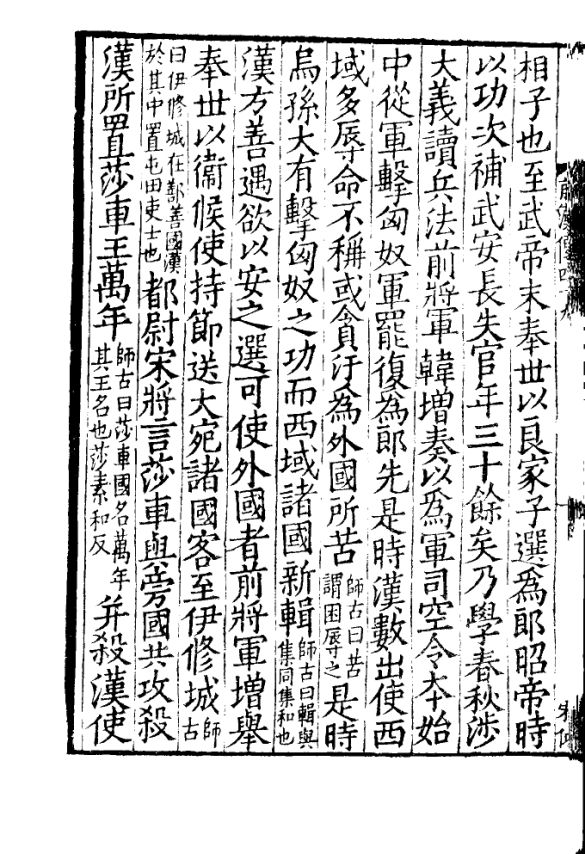 相子也至武帝末奉世以良家子選為郎昭帝時
以功次補武安長失官年三十餘矣乃學春秋涉
大義讀兵法前將軍韓增奏以為軍司空令本始
中從軍擊匈奴軍罷復為郎先是時漢數出使西
域多辱命不稱或貪汙為外國所苦師古曰苦謂困辱之是時
烏孫大有擊匈奴之功而西域諸國新輯師古曰輯與集同集和也
漢方善遇欲以安之選可使外國者前將軍增舉
奉世以衞候使持節送大宛諸國客至伊修城師古
曰伊修城在鄯善國漢於其中置屯田吏士也都尉宋將言莎車與旁國共攻殺
漢所置莎車王萬年師古曰莎車國名萬年其王名也莎素和反并殺漢使